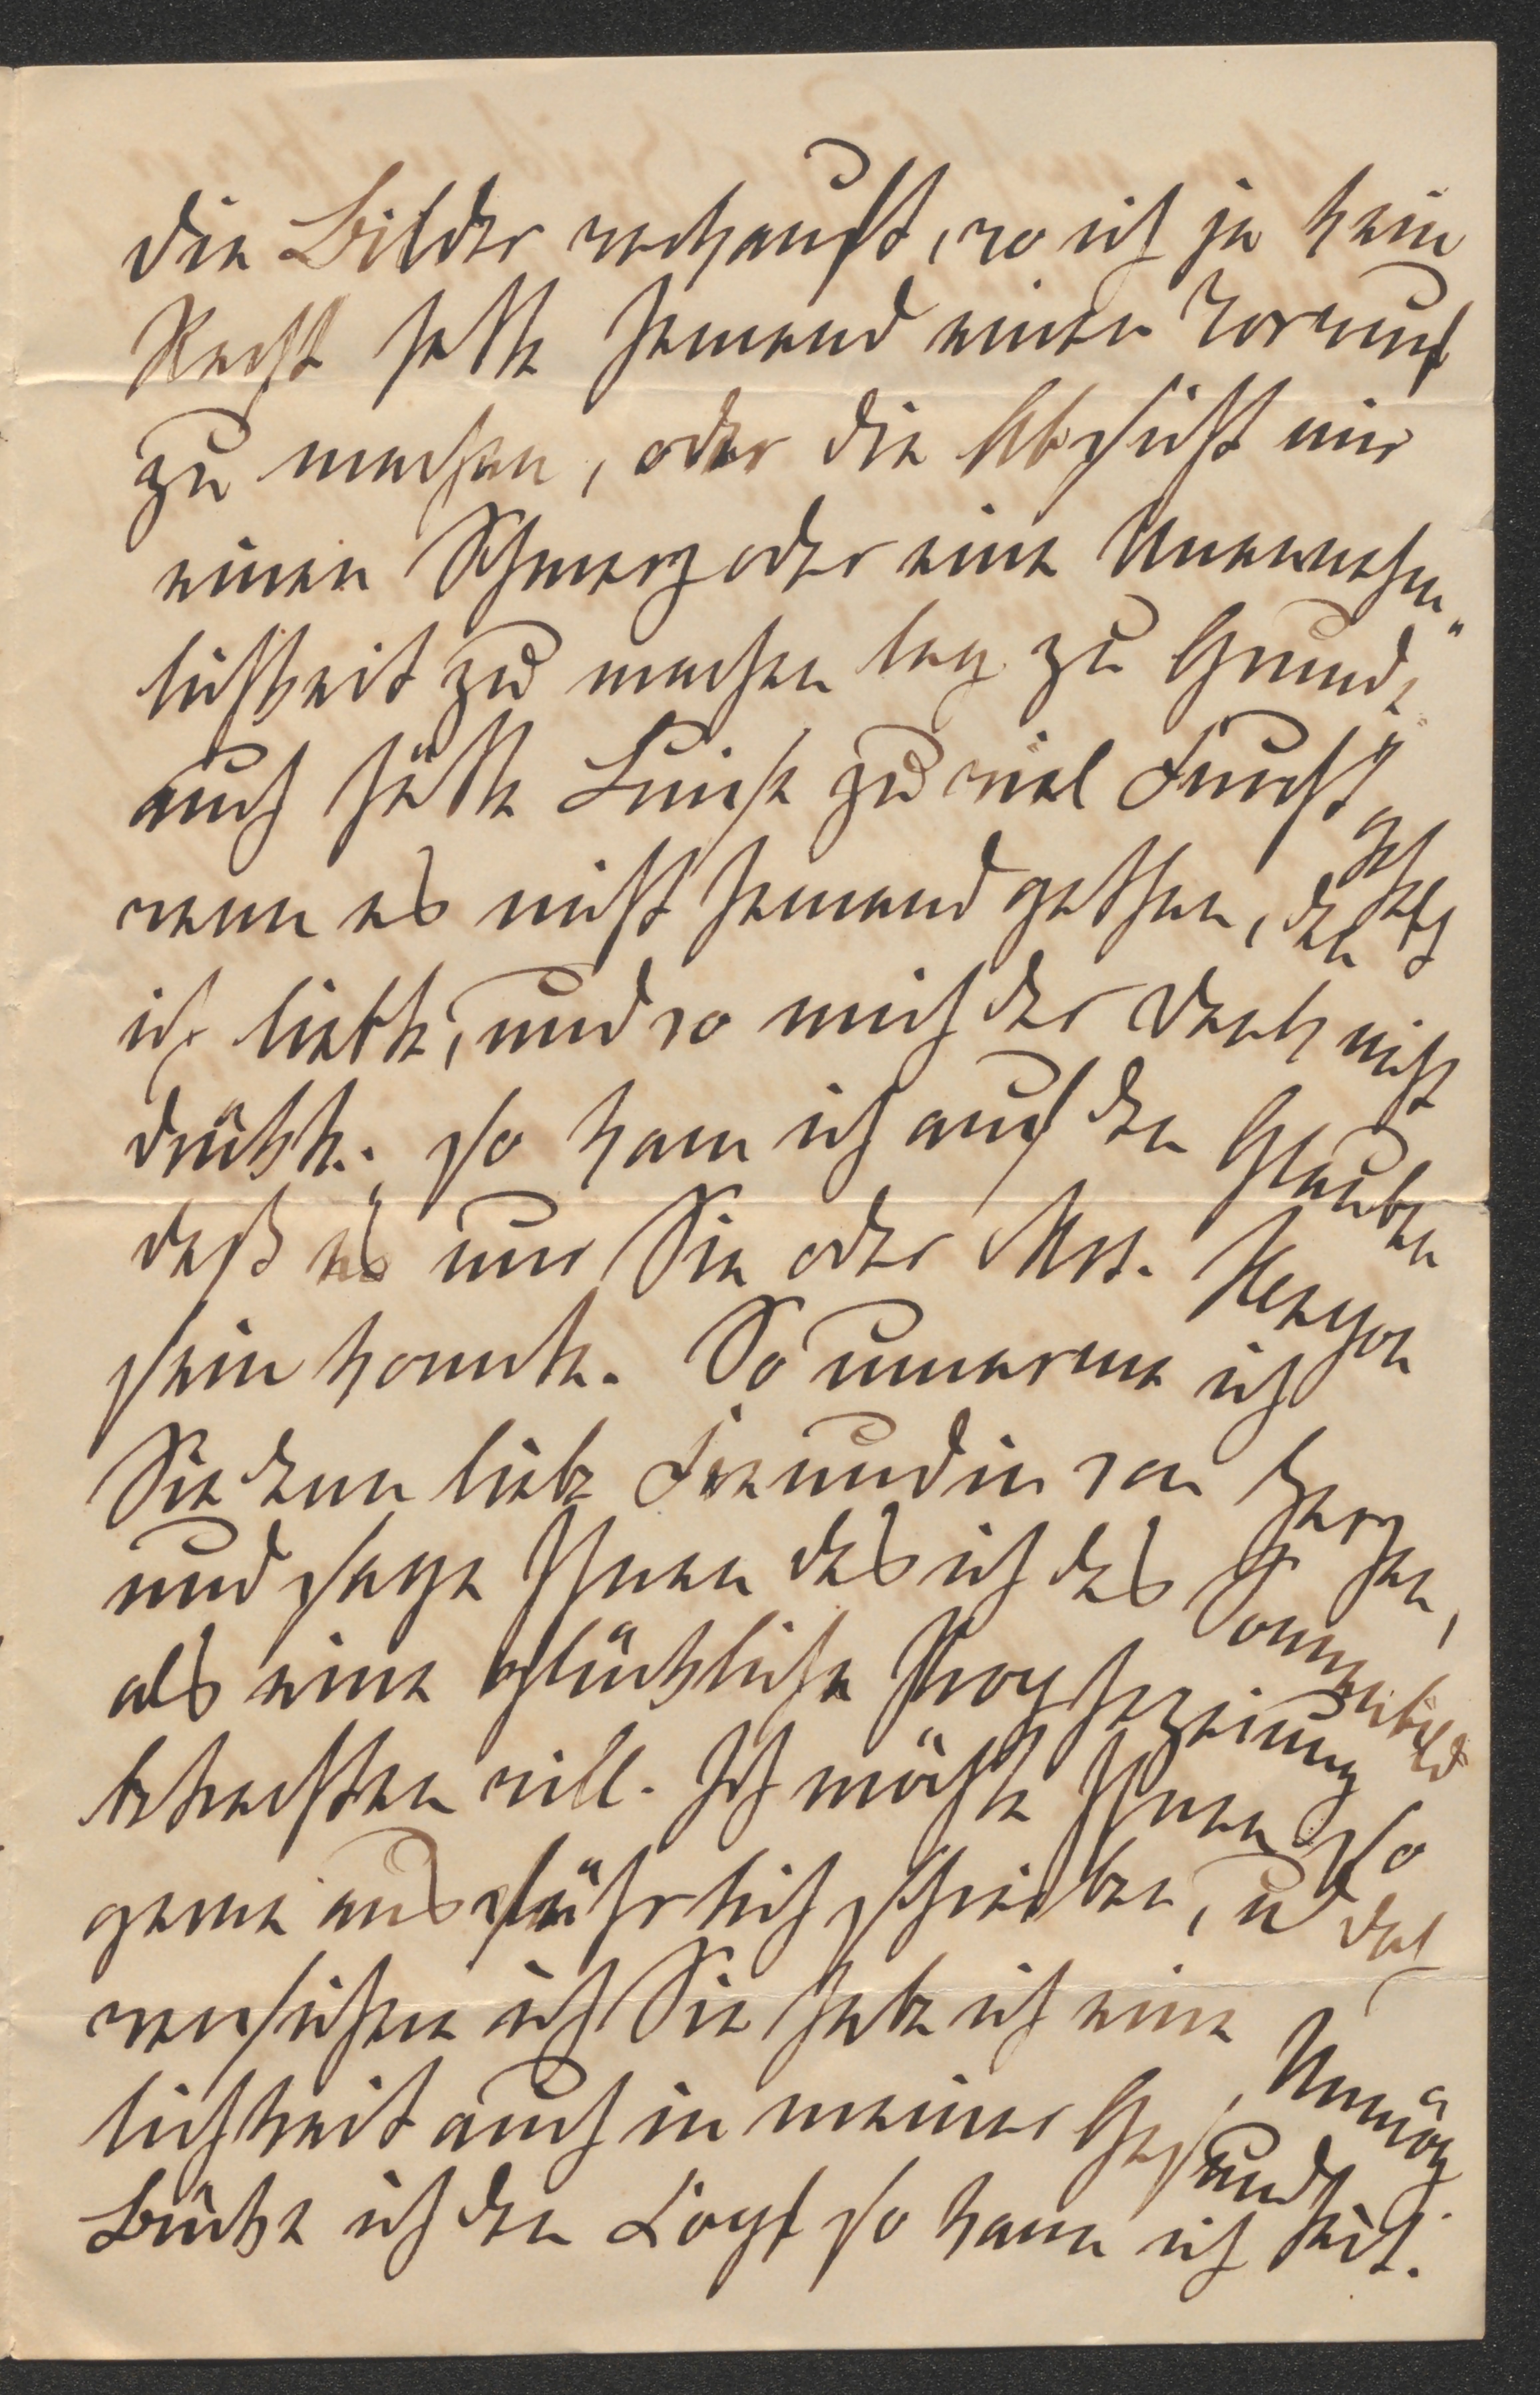 die Bilder verkauft, wo ich ja kein
Recht hatte Jemand einen Vorwurf
zu machen, oder die Absicht mir
einen Schmerz oder eine Unannehm„
lichkeit zu machen lag zu Grunde,
auch hätte Luise zu viel Furcht gehabt
wenn es nicht Jemand gethan, den
ich liebte, und wo mich der Dank nicht
drückte. So kam ich auf den Glauben
daß es nur Sie oder Mrs. Kenyon
sein konnte. So umarme ich
Sie denn liebe Freundin von Herzen,
und sage Ihnen das ich das Sonnenbild
als eine glückliche Prophezeiung
betrachten will. Ich möchte Ihnen so
gerne ausführlich schreiben, u das
versichere ich Sie habe ich eine Unmög
lichkeit auch in meiner Gesundheit.
Bücke ich den Kopf so kann ich